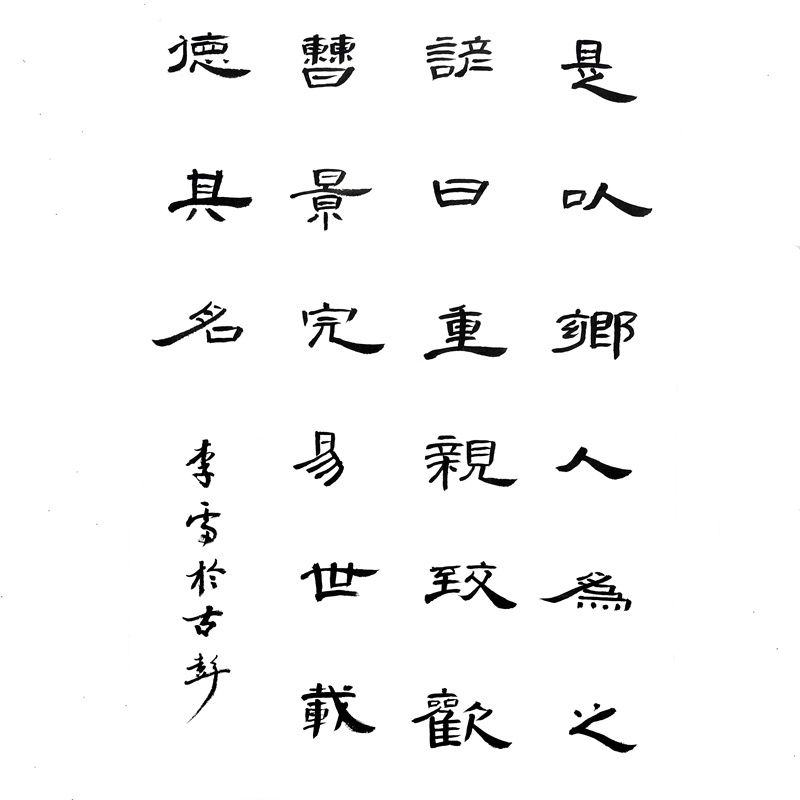 是以鄉人為之
諺曰重親致歡
曹景完易世載
德其名
李雷於古彭